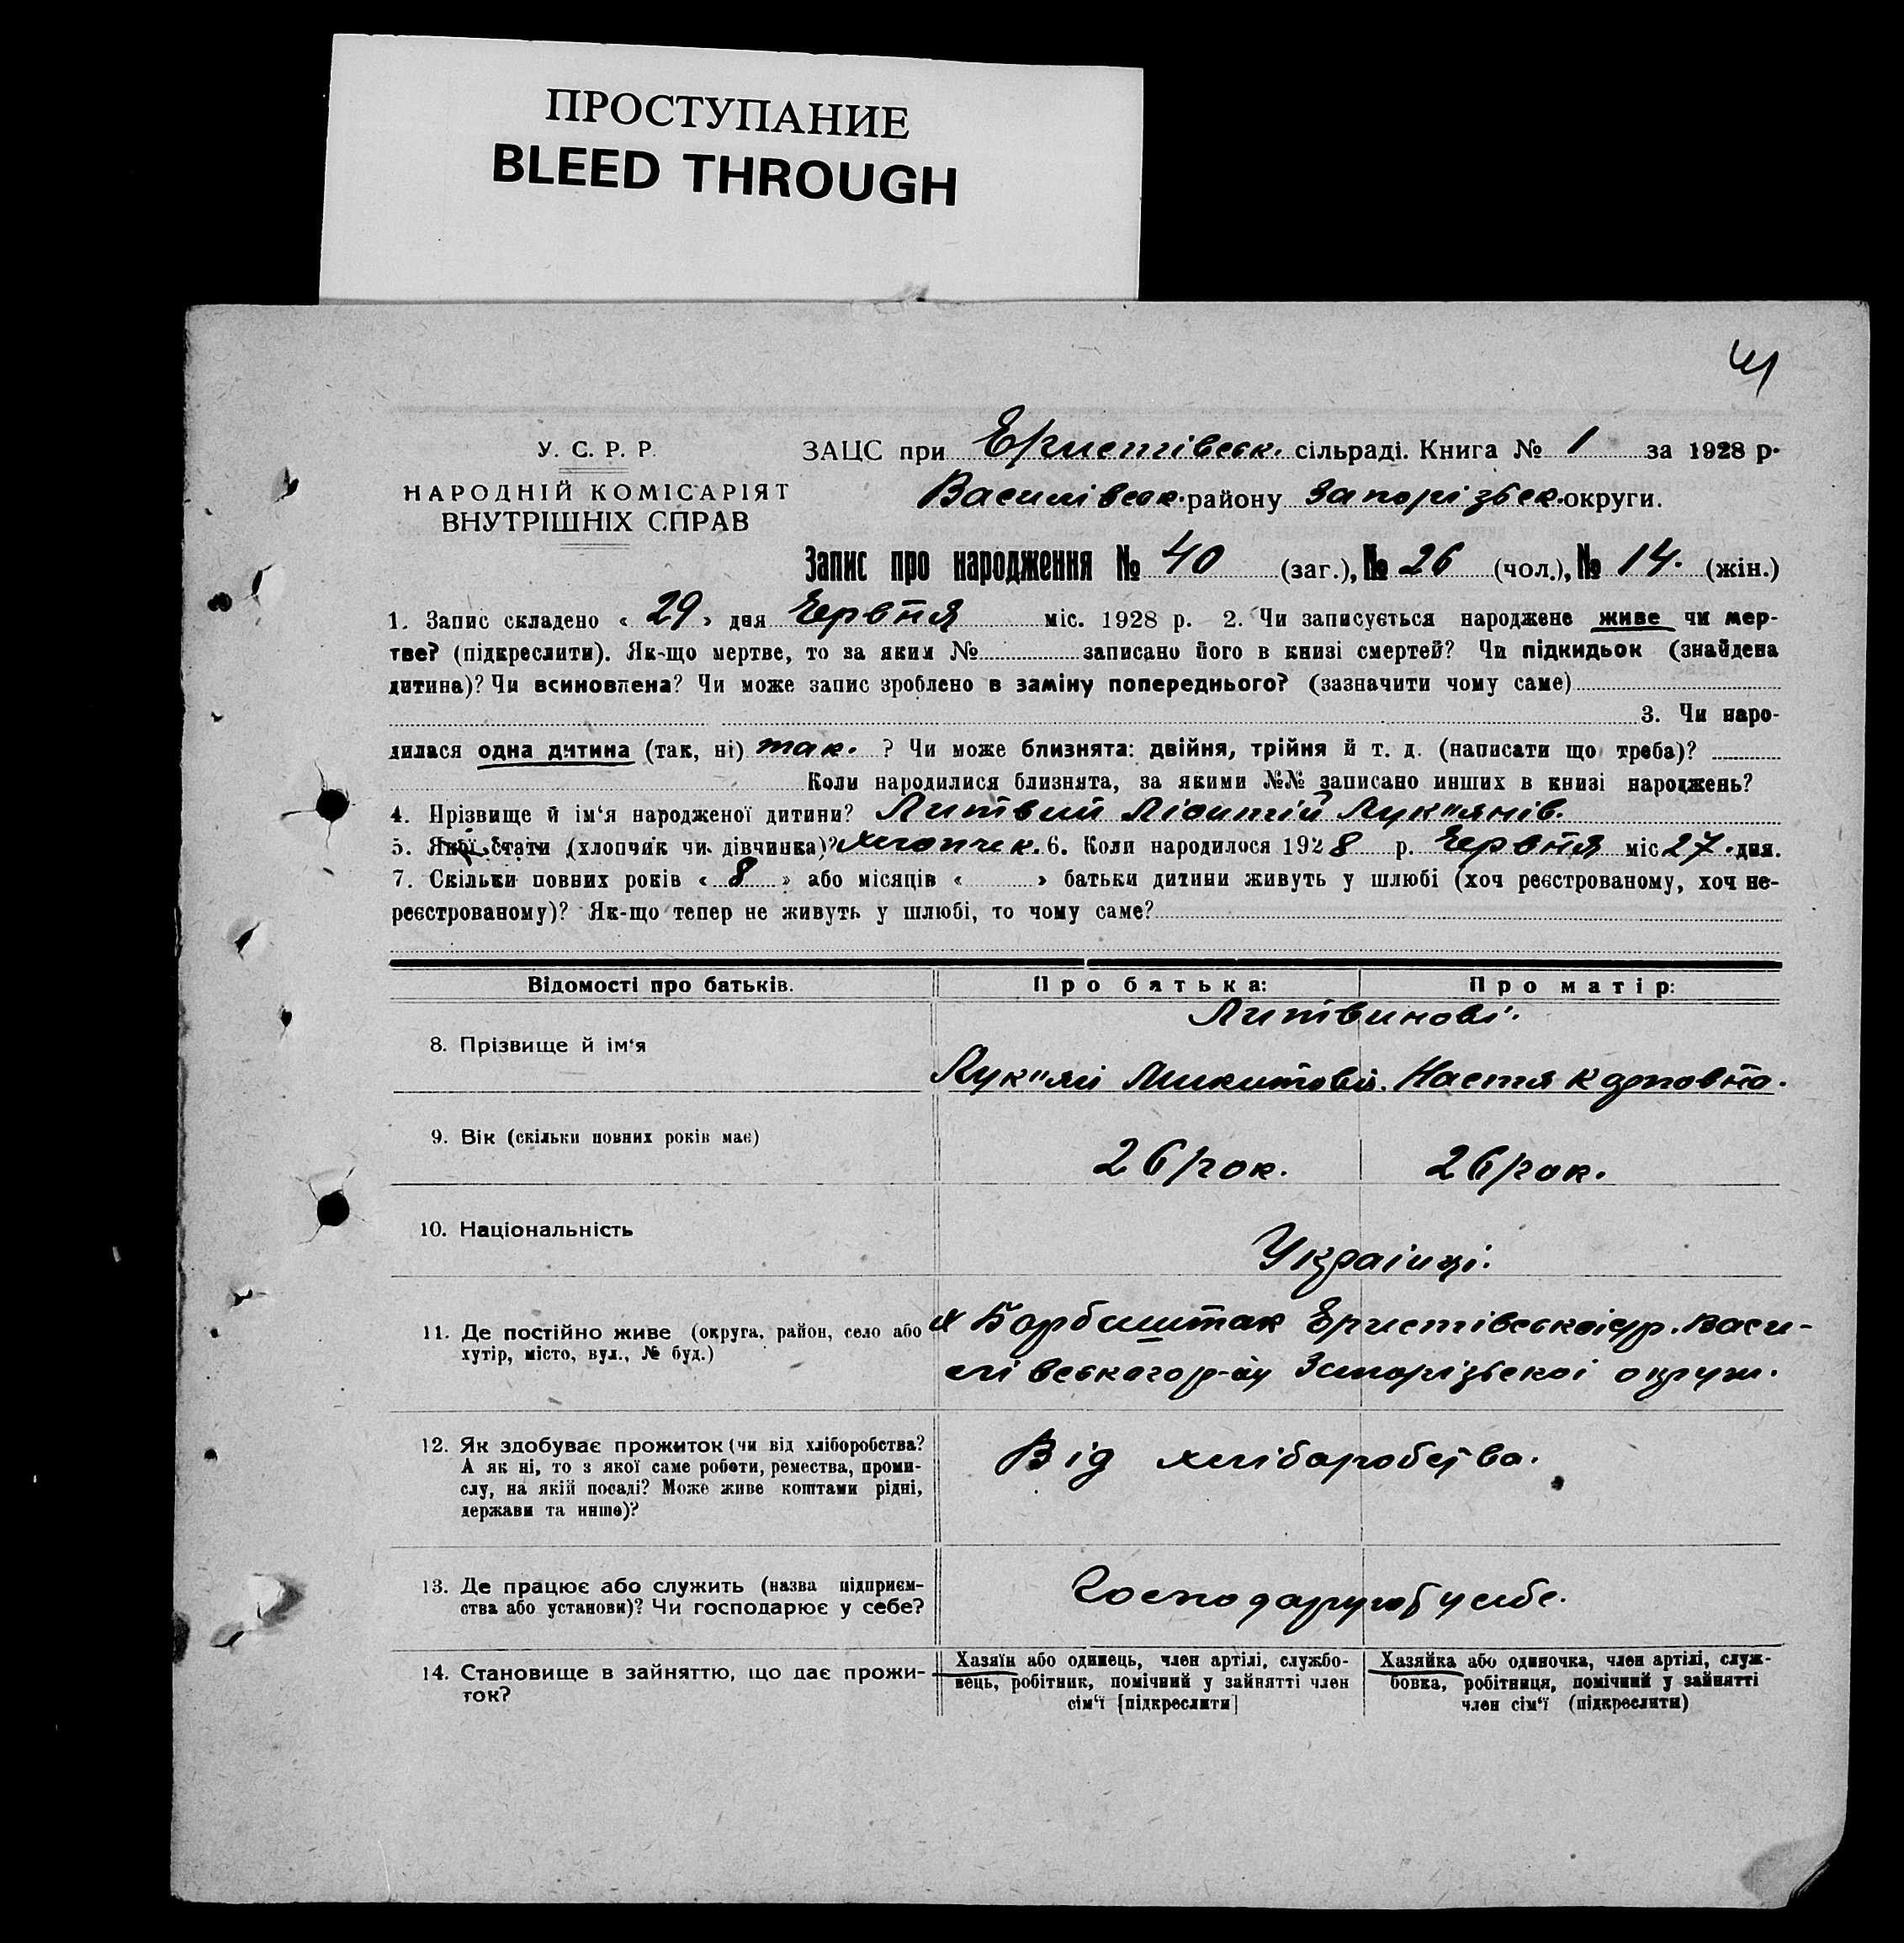 ПРОСТУПАНИЕ
BLEED THROUGH
41
У. С. Р. Р.
НАРОДНІЙ КОМІСАРІЯТ
ВНУТРІШНІХ СПРАВ
ЗАЦС при Еристівськ. сільраді. Книга № 1 за 1928 р.
Василівськ. району Запорізьк. округи.
Запис про народження № 40 (заг.), № 26 (чол.), № 14. (жін.)
1. Запис складено « 29 » дня Червня міс. 1928 р. 2. Чи записується народжене живе чи мер-
тве? (підкреслити). Як-що мертве, то за яким № записано його в книзі смертей? Чи підкидьок (знайдена
дитина)? Чи всиновлена? Чи може запис зроблено в заміну попереднього? (зазначити чому саме)
3. Чи наро-
дилася одна дитина (так, ні) так. ? Чи може близнята: двійня, трійня й т. д. (написати що треба)?
Коли народилися близнята, за якими №№ записано инших в книзі народжень?
4. Прізвище й ім‘я народженої дитини? Литвин Лук"янів.
5. Якої стати (хлопчик чи дівчинка)? хлопчик. 6. Коли народилося 1928 р. Червня міс 27. дня.
7. Скільки повних років « 8 » або місяців « » батьки дитини живуть у шлюбі (хоч реєстрованому, хоч не-
реєстрованому)? Як-що тепер не живуть у шлюбі, то чому саме?
Відомості про батьків. Про батька: Про матір:
Литвинові.
8. Прізвище й ім‘я
Лук"ян Микитов. Настя Карповна.
9. Вік (скільки повних років має)
26 рок. 26 рок.
10. Національність
Українці.
11. Де постійно живе (округа, район, село або
хутір, місто, вул., № буд.)
х Еристівської с/р. Васи-
лівського р-ну Запорізької округи.
12. Як здобуває прожиток (чи від хліборобства?
А як ні, то з якої саме роботи, ремества, проми-
слу, на якій посаді? Може живе коштами рідні,
держави та инше)?
Від хліборобства.
13. Де працює або служить (назва підприєм-
ства або установи)? Чи господарює у себе?
Господарують у себе.
14. Становище в зайняттю, що дає прожи-
ток?
Хазяїн або одинець, член артілі, службо-
вець, робітник, помічний у зайнятті член
сім‘ї [підкреслити]
Хазяйка або одиночка, член артілі, служ-
бовка, робітниця, помічний у зайнятті
член сім‘ї (підкреслити)